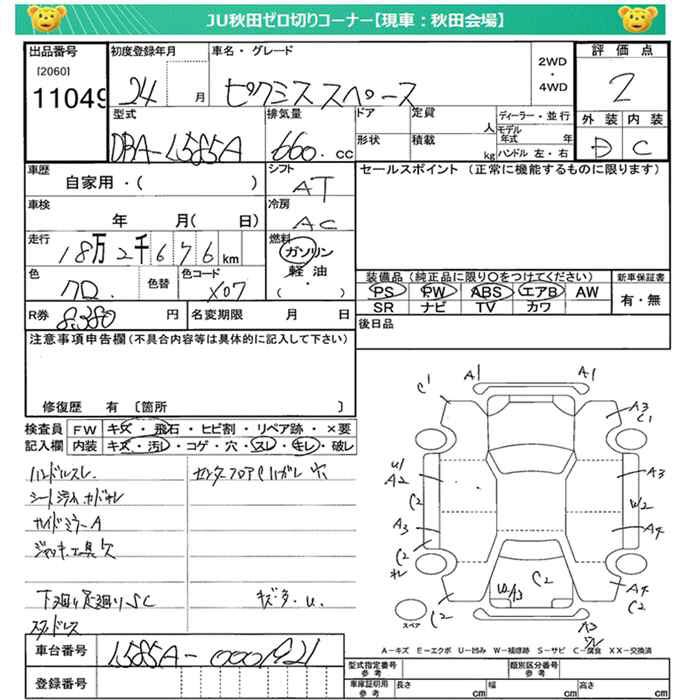 JU秋田ゼロ切りコーナー【現車：秋田会場】
出品番号
[2060]
11049
初度登録年月
24 月
車名・グレード
ピクシススペース
2WD
・
4WD
評価点
2
外装 内装
D C
型式
DBA-L585A
排気量
660. cc
ドア
形状
定員 人
積載 kg
ディーラー・並行
モデル年式 年
ハンドル 左・右
車歴
自家用・( )
シフト
AT
セールスポイント (正常に機能するものに限ります)
車検
年 月( 日)
冷房
AC
走行
18万2千676km
燃料
ガソリン
軽油
・( )
色
色替
色コード
X07
装備品(純正品に限り○をつけてください)
PS PW ABS エアB AW
SR ナビ TV カワ
新車保証書
有・無
R券
8,380円
名変期限 月 日
後日品
注意事項申告欄(不具合内容等は具体的に記入して下さい)
修復歴 有 〔箇所 〕
検査員記入欄
FW キズ・飛石・ヒビ割・リペア跡・×要
内装 キズ・汚レ・コゲ・穴・スレ・キレ・破レ
ハンドルスレ
センターフロアCハガレ 穴
サイドミラーA
ジャッキ工具欠
下廻り足廻りSC
キズ多.U.
A1 A1
C1
A3
C1
U1
A2
A3
C2
W2
A3
A4
C2
C2
A4
C2
C2
A3
スペア
A－キズ E－エクボ U－凹み W－補修跡 S－サビ C－腐食 XX－交換済
車台番号
L585A-0001921
登録番号
型式指定番号
参考
類別区分番号
参考
車庫証明用
参考
長さ cm
幅 cm
高さ cm